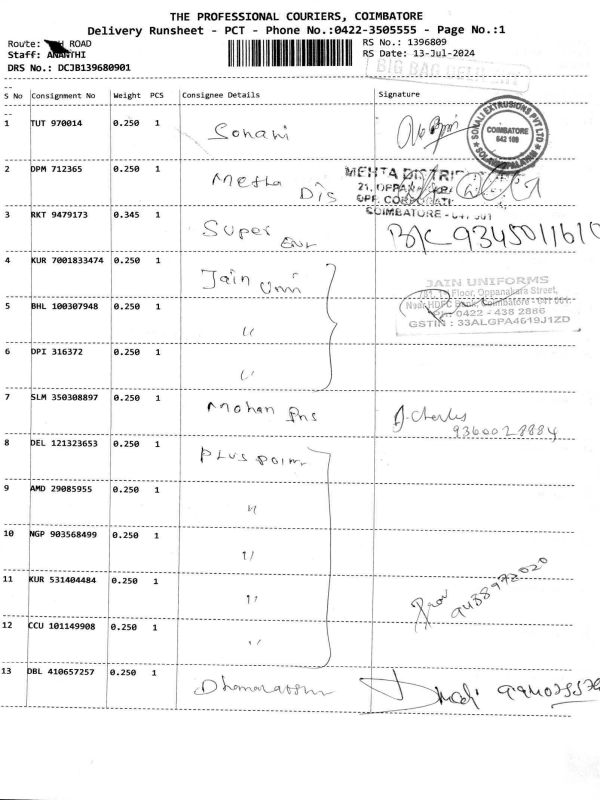 THE PROFESSIONAL COURIERS, COIMBATORE
Delivery Runsheet - PCT - Phone No.:0422-3505555 - Page No.:1
Route: ROAD
RS No.: 1396809
Staff: ANANTHI
RS Date: 13-Jul-2024
DRS No.: DCJB139680901
BIG BAG DELIVERY
S No Consignment No Weight PCS Consignee Details Signature
1 TUT 970014 0.250 1 Sonari
SONALI EXTRUSIONS PVT LTD
COIMBATORE
642 109
2 DPM 712365 0.250 1 Metha Dis
MEHTA DISTRI
21, OPPANA
OPP. CORPORATI
COIMBATORE - 641 001
3 RKT 9479173 0.345 1 Super Env B/C 9345011610
4 KUR 7001833474 0.250 1 Jain Uni
JAIN UNIFORMS
Floor, Oppanakara Street,
Near HDFC Bank, Coimbatore - 641 001.
Ph: 0422 - 438 2866
GSTIN : 33ALGPA4619J1ZD
5 BHL 100307948 0.250 1 "
6 DPI 316372 0.250 1 "
7 SLM 350308897 0.250 1 Mohan Pns A. Charles
9360028884
8 DEL 121323653 0.250 1 Plus Point
9 AMD 29085955 0.250 1 "
10 NGP 903568499 0.250 1 "
11 KUR 531404484 0.250 1 "
9438972020
12 CCU 101149908 0.250 1 "
13 DBL 410657257 0.250 1